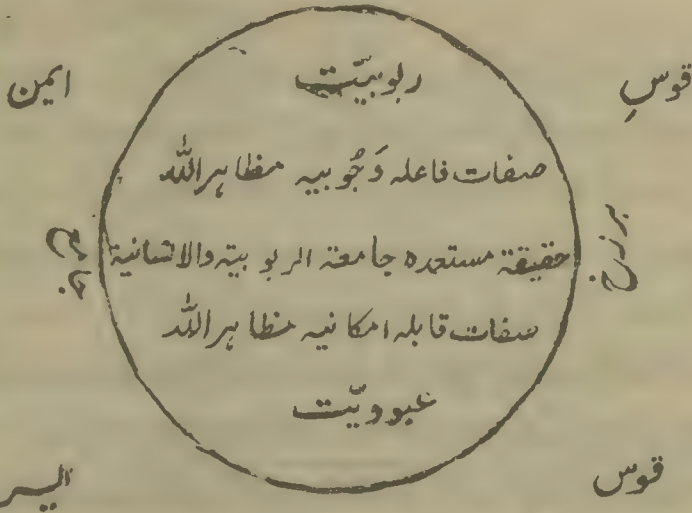 قوسِ ایمن
ربوبیّت
صفات فاعلہ وَجُوبیہ مظاہراللہ
برزخ
حقیقة مستعدہ جامعتہ الربوبیتہ والانسانیة
جامع
صفات قابلہ امکانیہ مظاہراللہ
عبودیّت
قوس الیسر